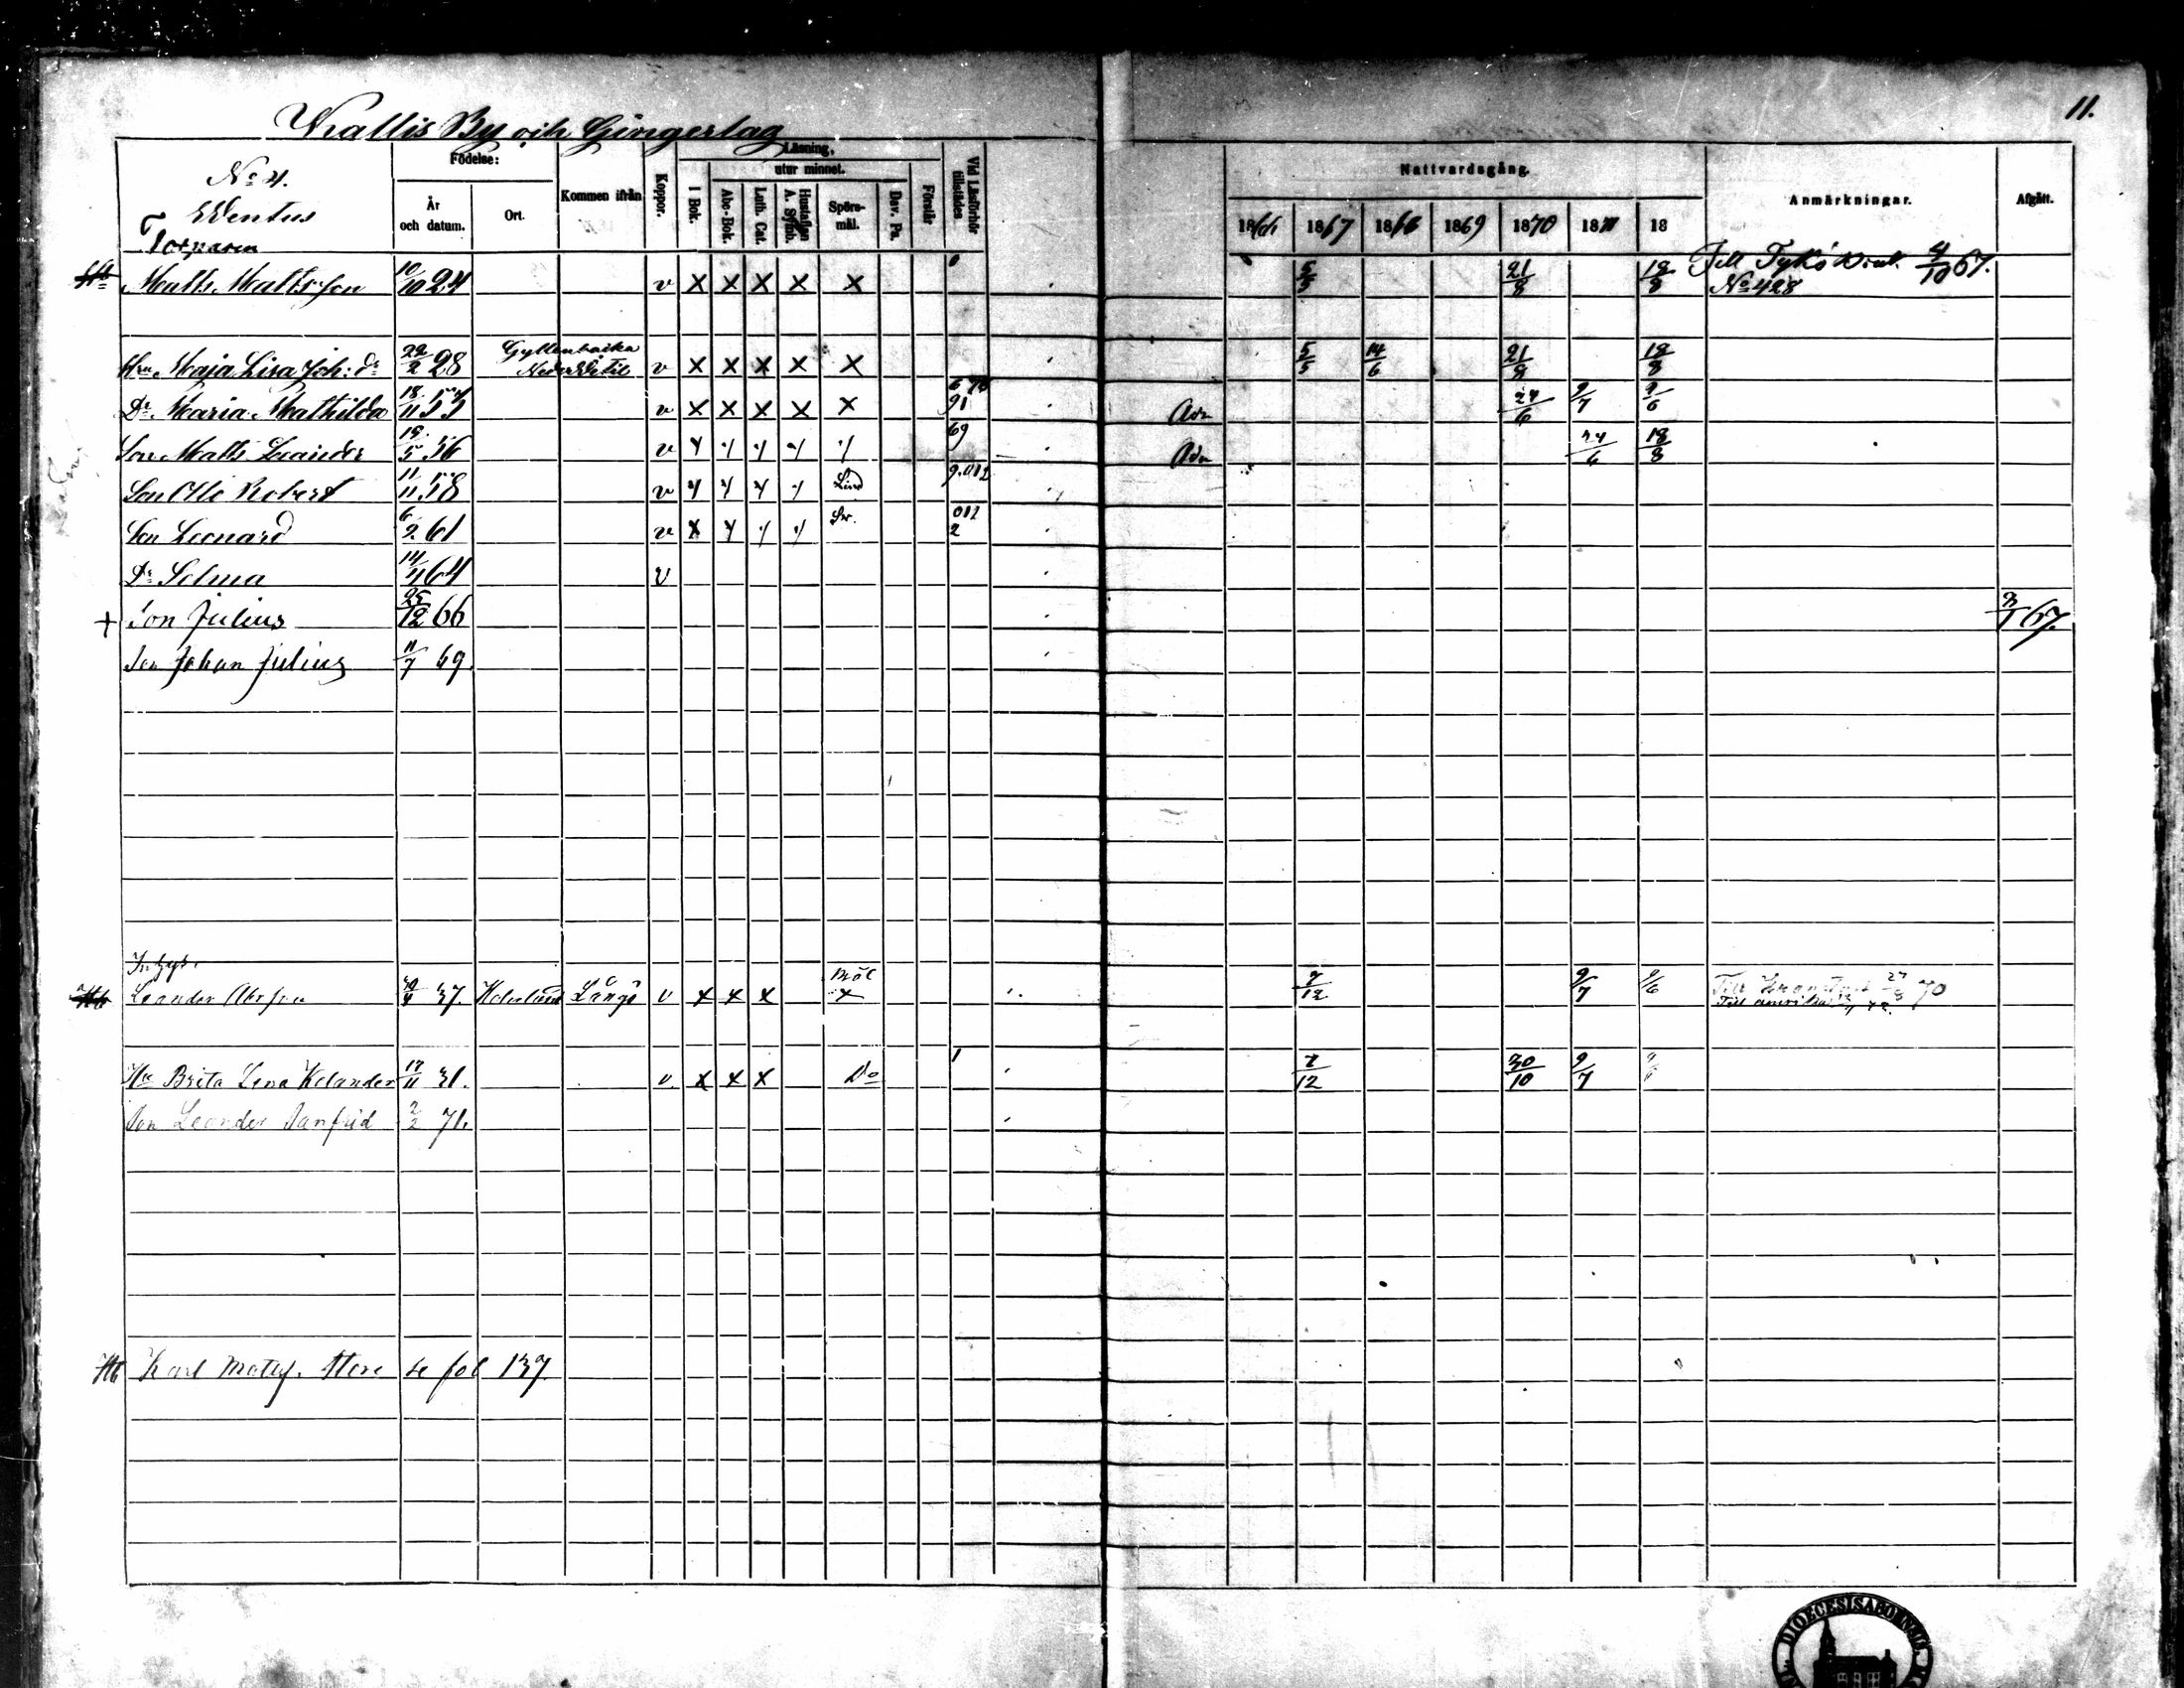 11.
Wallis By och Gingerlag
No 4.
Wentus
Torparen
Födelse:
År och datum.
Ort.
Kommen ifrån
Koppor.
Läsning,
utur minnet.
I Bok.
Abc-Bok.
Luth. Cat.
Hustaflan A. Symb.
Spörsmål.
Dav. Ps.
Förstår
Vid Läsförhör tillstädes
Nattvardsgång.
1867 18 1869 1870 18 18
Anmärkningar.
Afgått.
Matts Mattsson 10/10 24 v x x x x x 5/5 21/8 18/8 Till Tykö 4/10 67.
No 428
Hru Maja Lisa Joh: dr 28 Gyllenbäcka v x x x x x 5/5 14/6 21/8 18/8
Dr Maria Mathilda 18/11 53 v x x x x x 91 Adm 24/6 9/7 9/6
Son Matts Leander 56 v 69 Adm 18/8
Son Otto Robert 11/11 58 v
Son Leonard 6/2 61 v x
Dr Selma 14/4 64 v
+ Son Julius 25/12 66 67.
Son Johan Julius 11/7 69.
Leander Abrsson 37 Långö v x x x x 7/12 9/7 9/6 Till 70
Till amerika
Hu Brita Lena Kelander 17/11 31. v x x x Do 1 7/12 30/10 9/7
Son Leander Sanfrid 2/2 71.
Karl Matts. se fol 137
DIOECESIS ABOENSIS